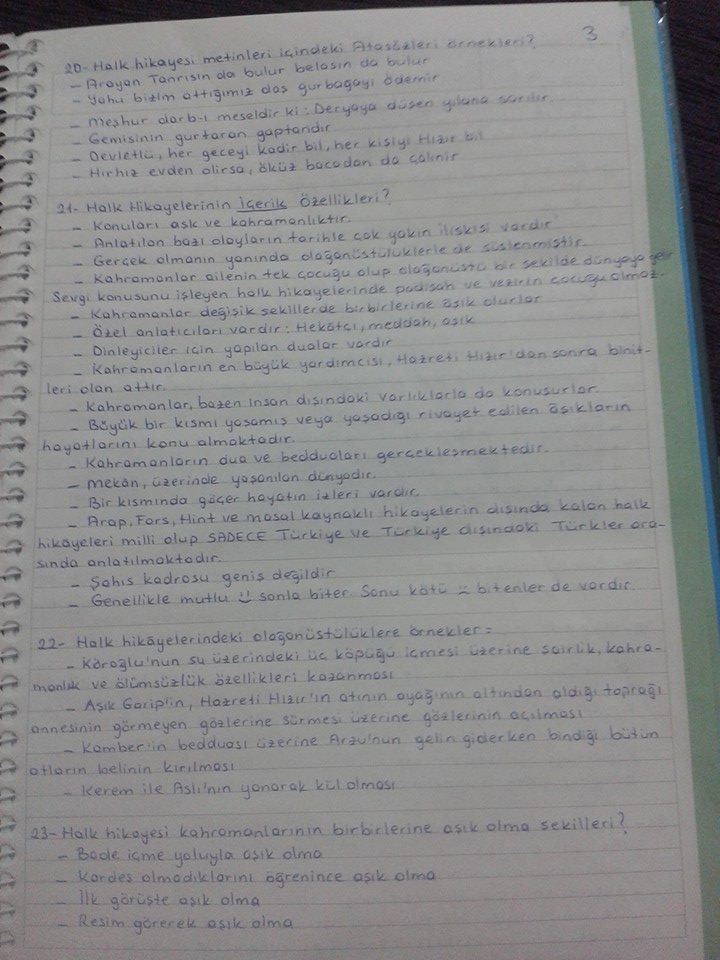 3
20- Halk hikayesi metinleri içindeki Atasözleri örnekleri?
- Arayan Tanrısın da bulur belasın da bulur
- Yahu bizim attığımız daş gurbağayı ödemir
- Meşhur darb-ı meseldir ki: Deryaya düşen yılana sarılır.
- Gemisinin gurtaran gaptandır
- Devletlü, her geceyi kadir bil, her kişiyi Hızır bil
- Hırhız evden olirsa, öküz bacadan da çalınir
21- Halk Hikayelerinin İçerik Özellikleri?
- Konuları aşk ve kahramanlıktır.
- Anlatılan bazı olayların tarihle çok yakın ilişkisi vardır
- Gerçek olmanın yanında olağanüstülüklerle de süslenmiştir.
- Kahramanlar ailenin tek çocuğu olup olağanüstü bir şekilde dünyaya gelir
Sevgi konusunu işleyen halk hikayelerinde padişah ve vezirin çocuğu olmaz.
- Kahramanlar değişik şekillerde birbirlerine aşık olurlar
- Özel anlatıcıları vardır: Hekâtçı, meddah, aşık
- Dinleyiciler için yapılan dualar vardır
- Kahramanların en büyük yardımcısı, Hazreti Hızır'dan sonra binit-
leri olan attır.
- Kahramanlar, bazen insan dışındaki varlıklarla da konuşurlar.
- Büyük bir kısmı yaşamış veya yaşadığı rivayet edilen aşıkların
hayatlarını konu almaktadır.
- Kahramanların dua ve bedduaları gerçekleşmektedir.
- Mekân, üzerinde yaşanılan dünyadır.
- Bir kısmında göçer hayatın izleri vardır.
- Arap, Fars, Hint ve masal kaynaklı hikayelerin dışında kalan halk
hikayeleri milli olup SADECE Türkiye ve Türkiye dışındaki Türkler ara-
sında anlatılmaktadır.
- Şahıs kadrosu geniş değildir
- Genellikle mutlu sonla biter. Sonu kötü bitenler de vardır.
22- Halk hikâyelerindeki olağanüstülüklere örnekler:
- Köroğlu'nun su üzerindeki üç köpüğü içmesi üzerine şairlik, kahra-
manlık ve ölümsüzlük özellikleri kazanması
- Aşık Garip'in, Hazreti Hızır'ın atının ayağının altından aldığı toprağı
annesinin görmeyen gözlerine sürmesi üzerine gözlerinin açılması
- Kamber'in bedduası üzerine Arzu'nun gelin giderken bindiği bütün
atların belinin kırılması
- Kerem ile Aslı'nın yanarak kül olması
23- Halk hikayesi kahramanlarının birbirlerine aşık olma şekilleri?
- Bade içme yoluyla aşık olma
- Kardeş olmadıklarını öğrenince aşık olma
- İlk görüşte aşık olma
- Resim görerek aşık olma